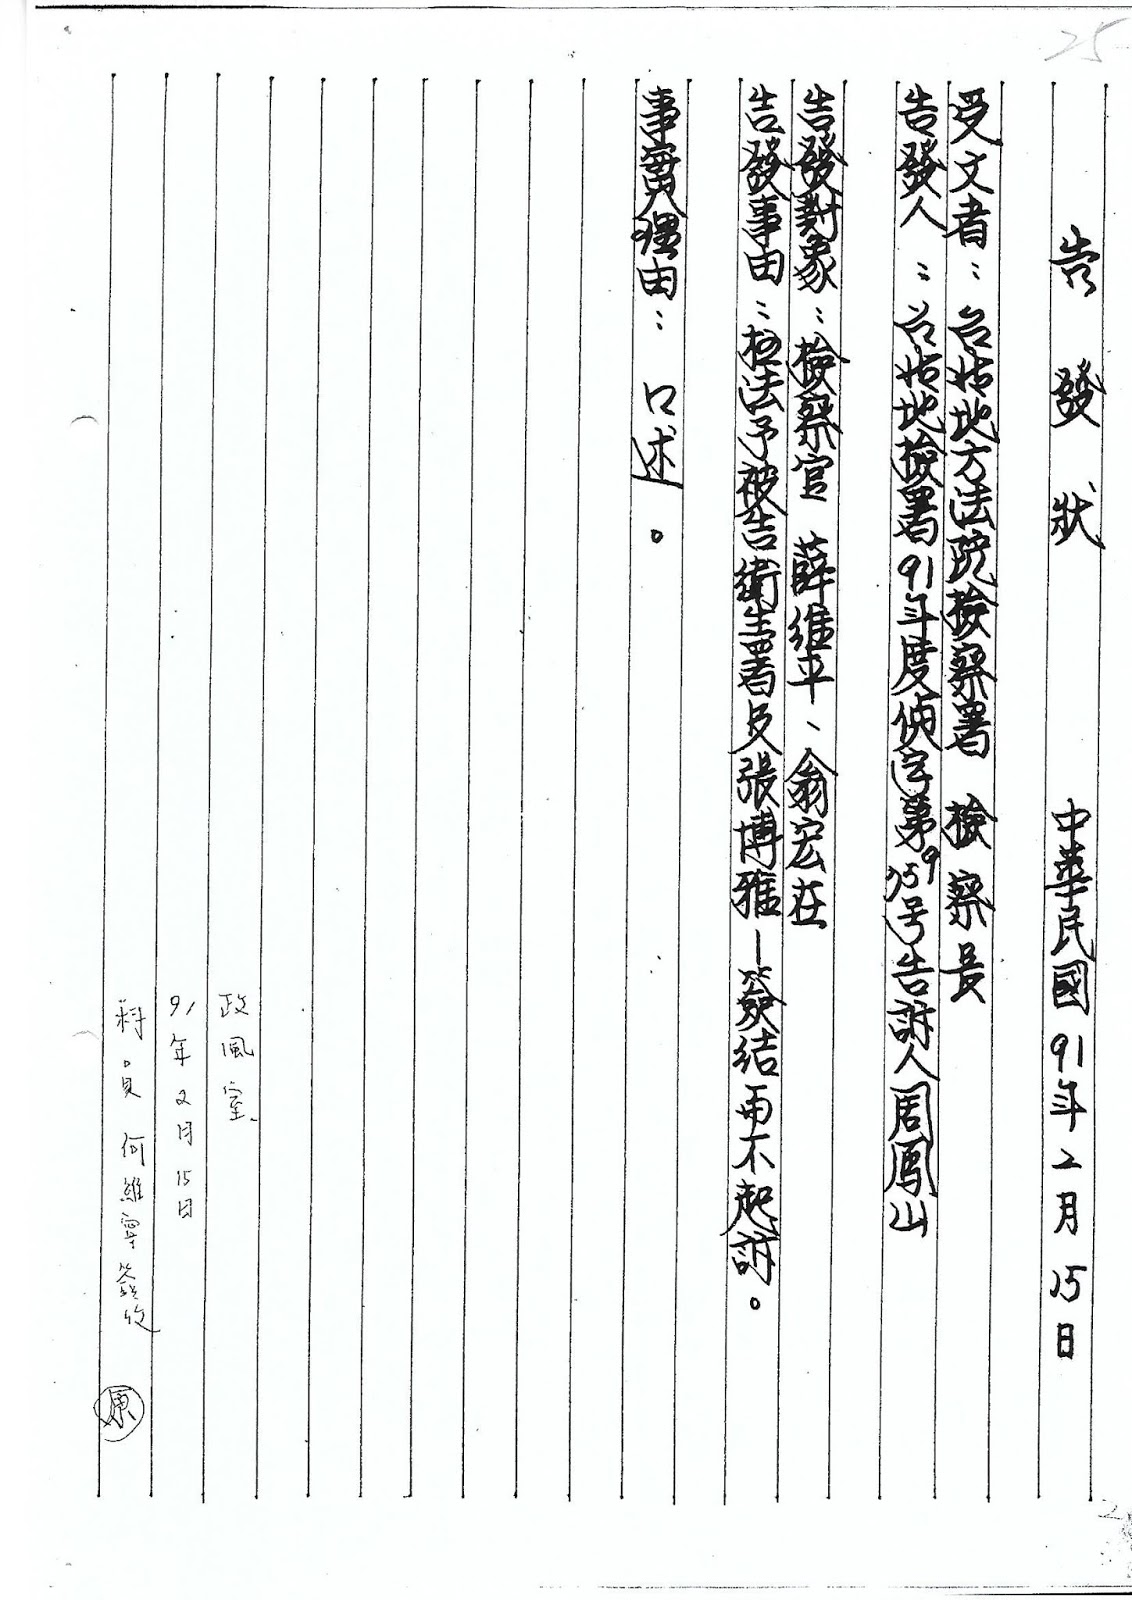 25
告發狀 中華民國91年2月15日
受文者：台北地方法院檢察署 檢察長
告發人：台北地檢署91年度偵字第 号告訴人周鳳山
告發對象：檢察官 薛維平、翁宏在
告發事由：枉法予被告衛生署及張博雅－簽結而不起訴。
事實理由：口述。
政風室
91年2月15日
科員 何維寧簽收 原